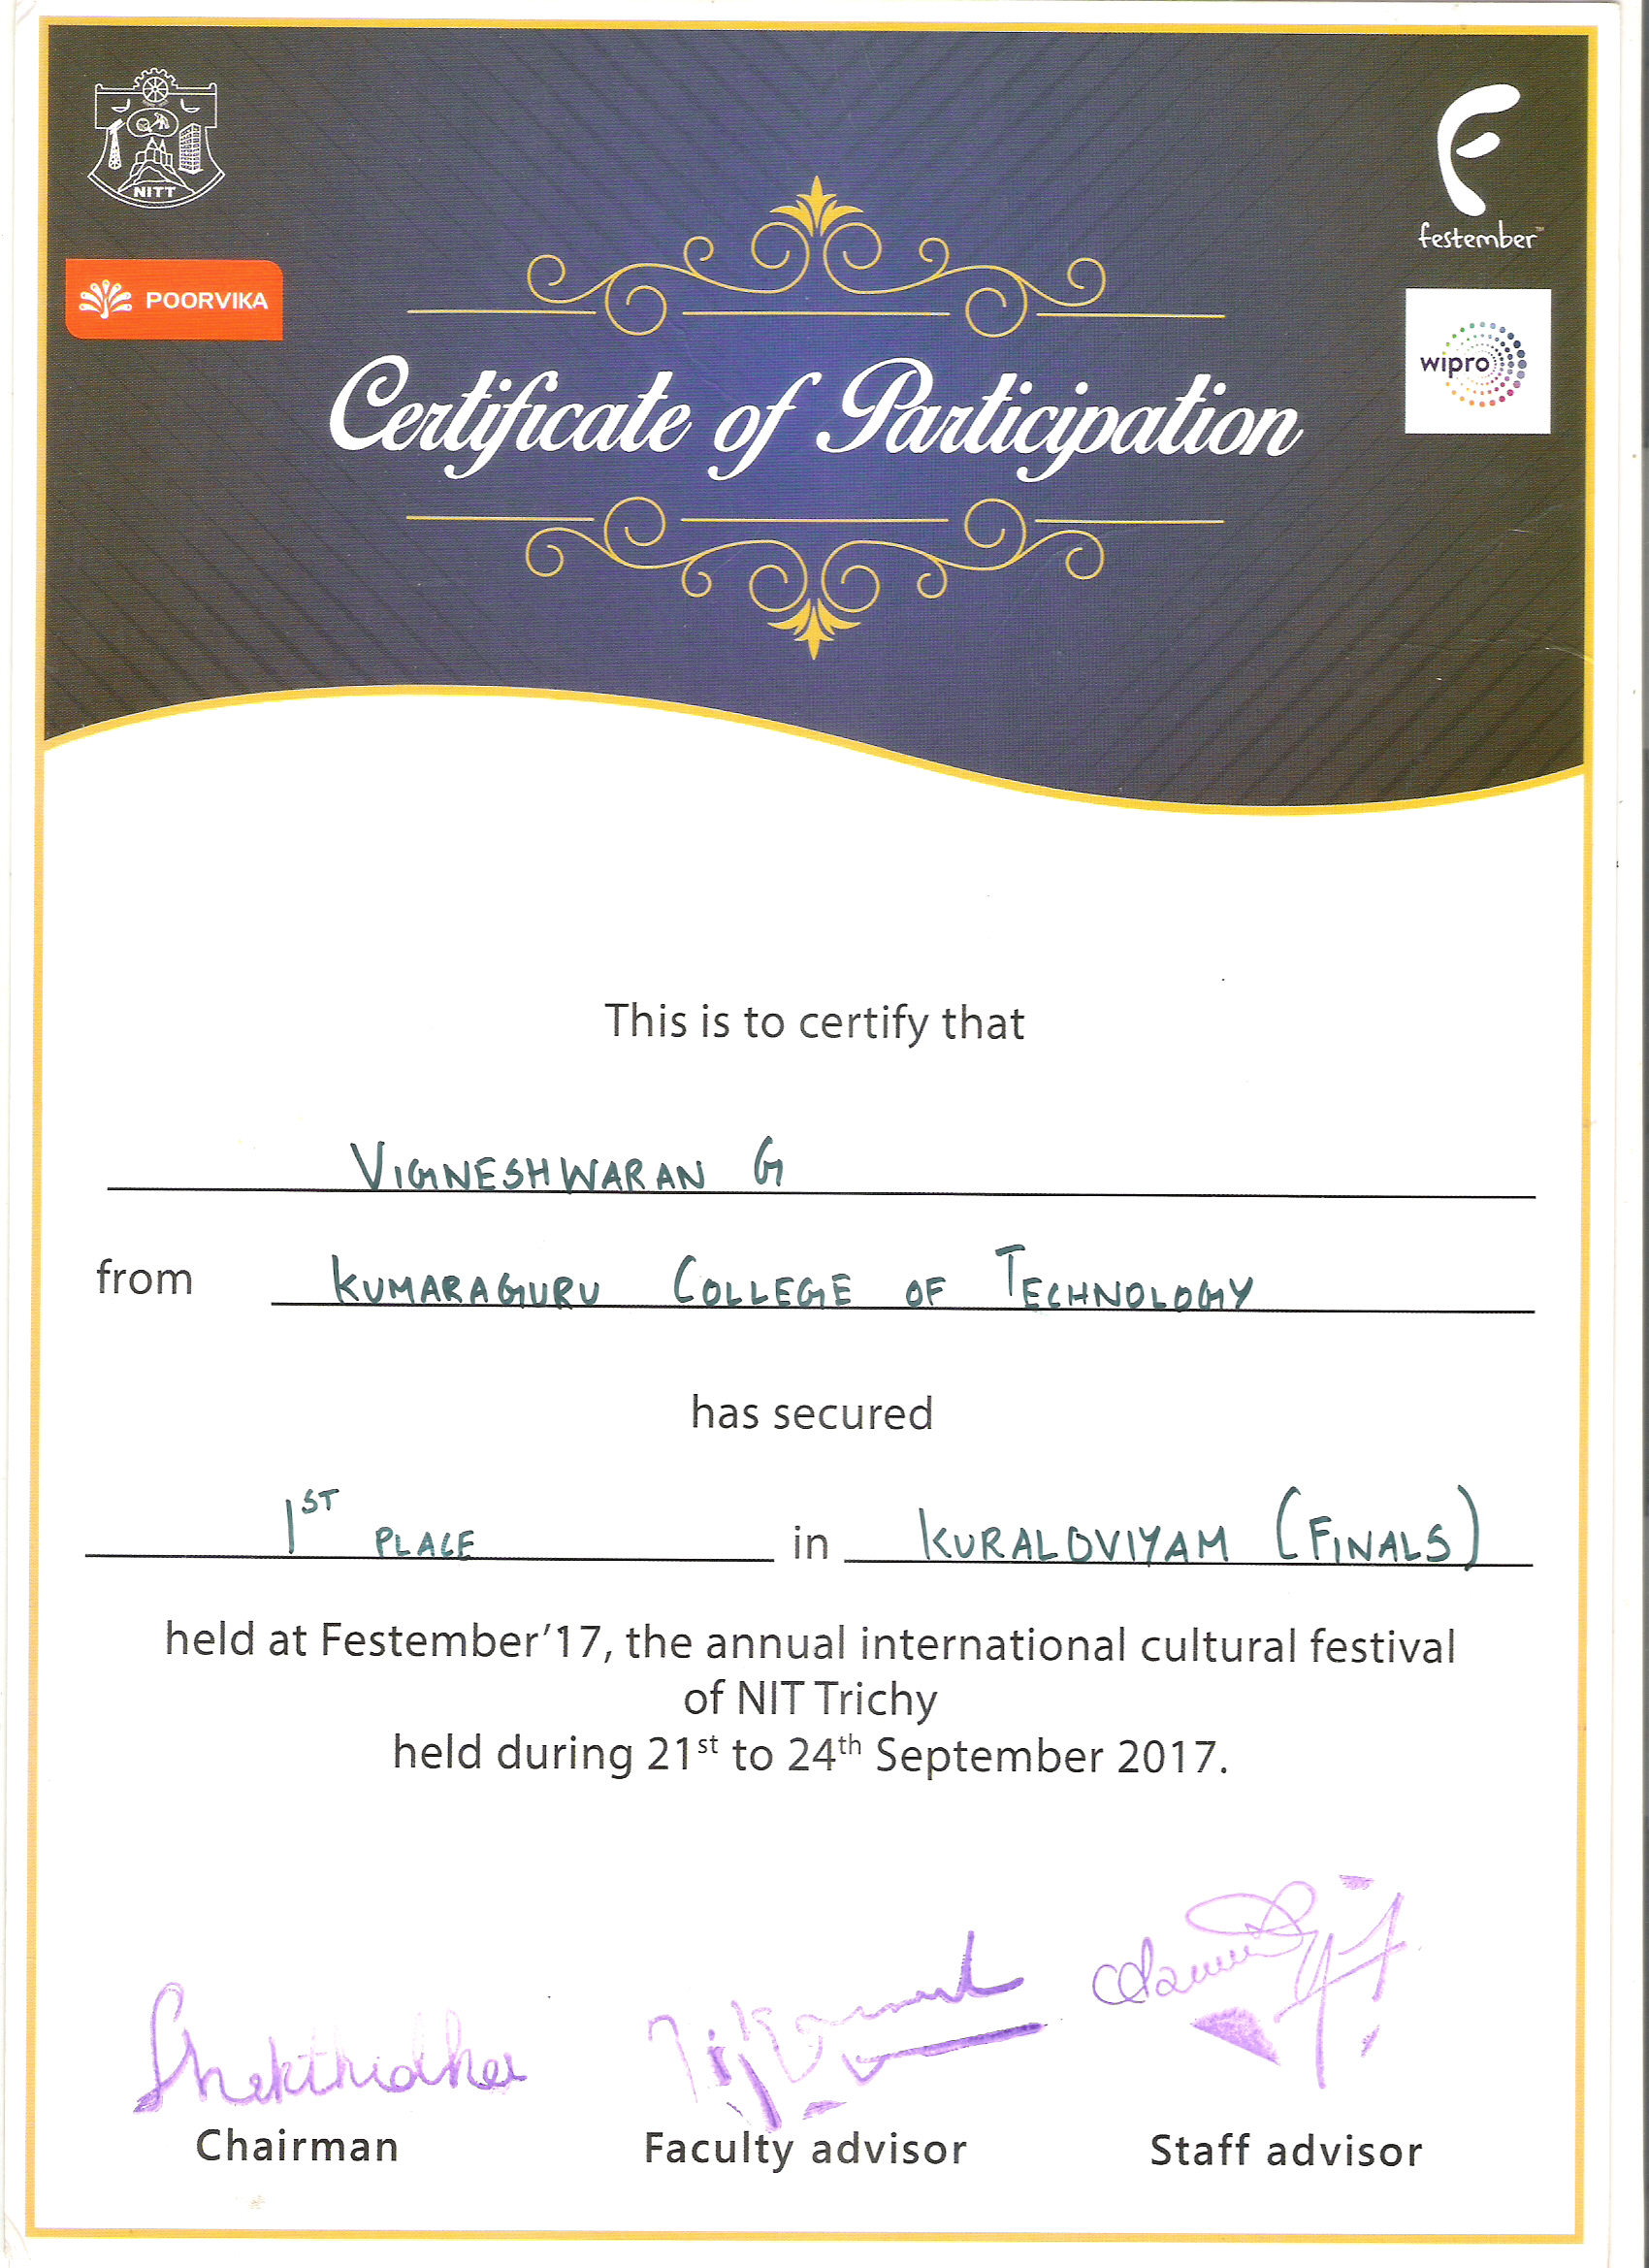 NITT
festember™
POORVIKA
wipro
Certificate of Participation
This is to certify that
VIGNESHWARAN G
from KUMARAGURU COLLEGE OF TECHNOLOGY
has secured
1ST PLACE in KURALOVIYAM (FINALS)
held at Festember'17, the annual international cultural festival
of NIT Trichy
held during 21st to 24th September 2017.
Chairman Faculty advisor Staff advisor